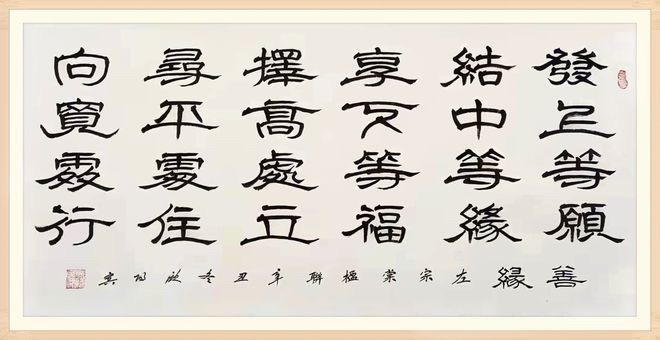 發上等願
結中等緣
享下等福
擇高處立
尋平處住
向寬處行
善緣 左宗棠楹聯辛丑冬